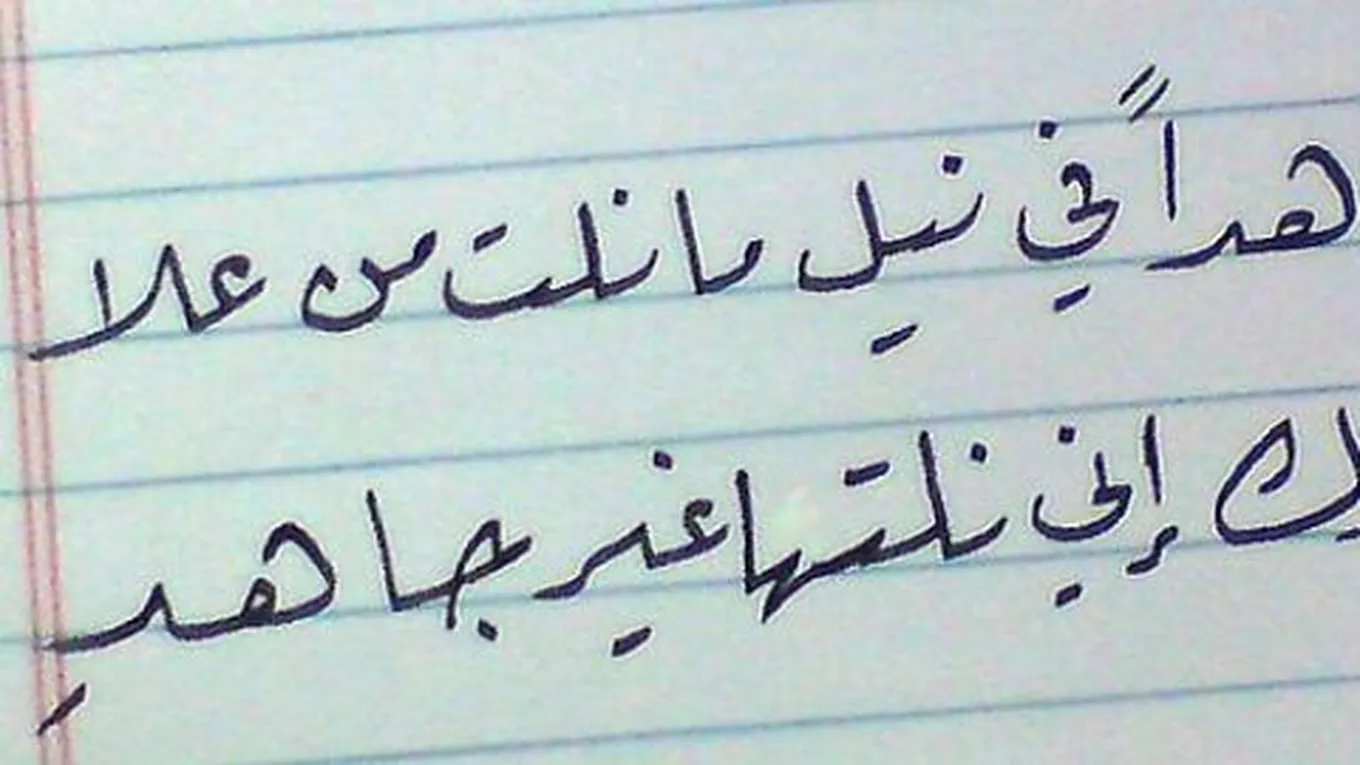 هداً في نيل ما نلت من علا
ك إني نلتها غير جاهدِ